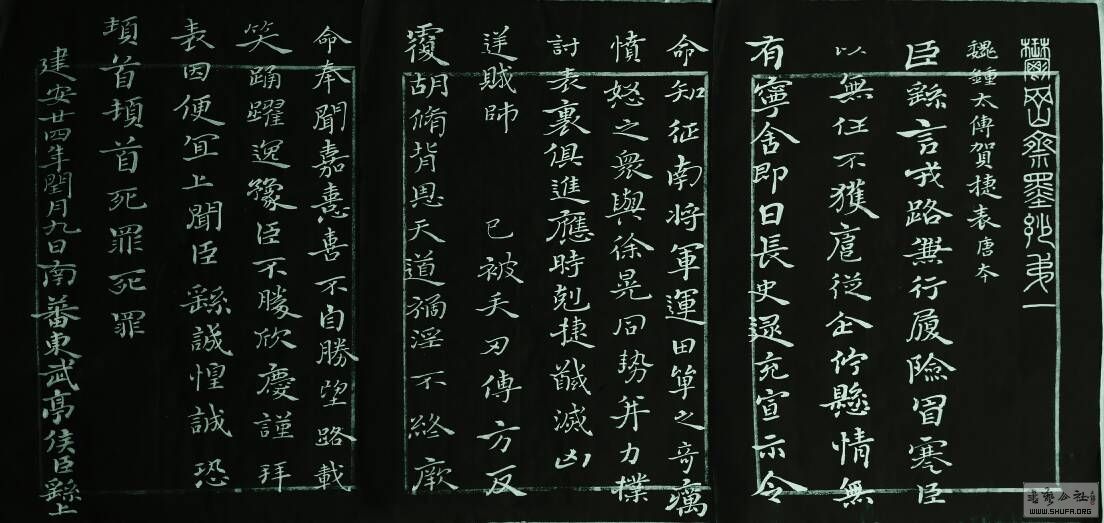 鬱岡齋墨妙弟一
魏鍾太傅賀捷表唐本
臣繇言戎路兼行履險冒寒臣
以無任不獲扈從企佇懸情無
有寧舍即日長史逯充宣示令
命知征南将軍運田單之奇厲
憤怒之衆與徐晃同勢并力撲
討表裏俱進應時剋捷馘滅凶
逆賊帥 已被矢刃傅方反
覆胡脩背恩天道禍淫不終厥
命奉聞嘉憙喜不自勝望路載
笑踊躍逸豫臣不勝欣慶謹拜
表因便宜上聞臣繇誠惶誠恐
頓首頓首死罪死罪
建安廿四年閏月九日南蕃東武亭侯臣繇上
書藝公社
WWW.SHUFA.ORG